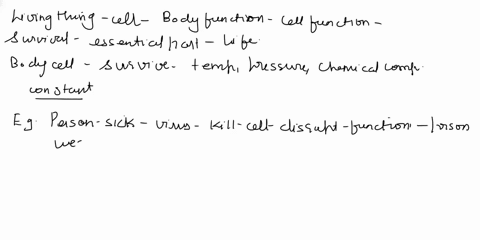 Living thing - cell - Body function - cell function -
Survival - essential part - Life.
Body cell - survive - temp, pressure, chemical comp.
constant
E.g. Person - sick - virus - kill - cell - disrupt - function - Person
we-